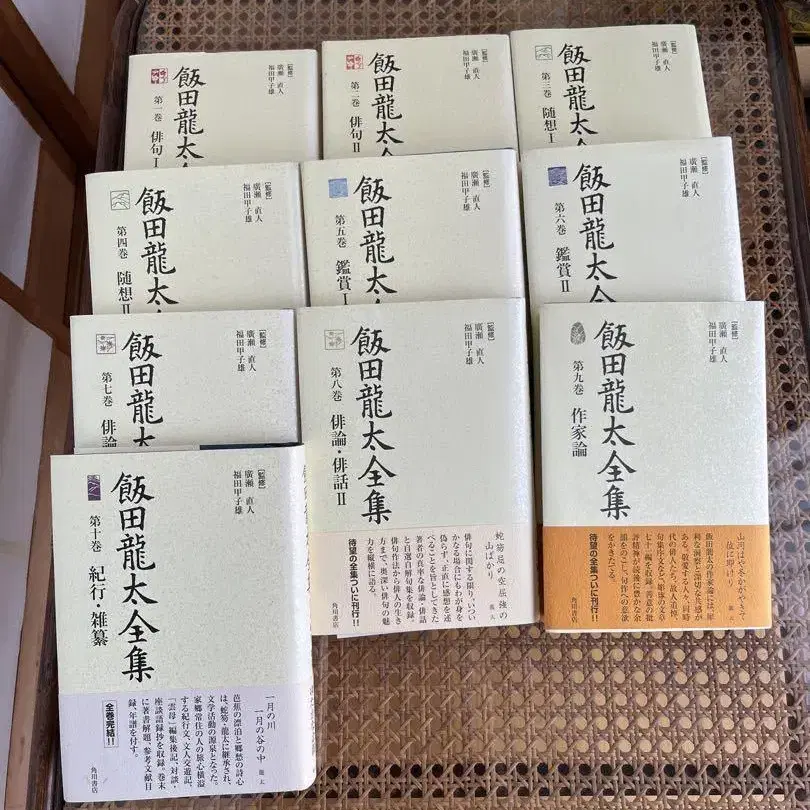 飯田龍太全集
第一巻 俳句Ⅰ
[監修]
廣瀬 直人
福田甲子雄
飯田龍太全集
第二巻 俳句Ⅱ
[監修]
廣瀬 直人
福田甲子雄
飯田龍太全集
第三巻 随想Ⅰ
[監修]
廣瀬 直人
福田甲子雄
飯田龍太全集
第四巻 随想Ⅱ
[監修]
廣瀬 直人
福田甲子雄
飯田龍太全集
第五巻 鑑賞Ⅰ
[監修]
廣瀬 直人
福田甲子雄
飯田龍太全集
第六巻 鑑賞Ⅱ
[監修]
廣瀬 直人
福田甲子雄
飯田龍太
第七巻 俳論
[監修]
廣瀬 直人
福田甲子雄
飯田龍太全集
第八巻 俳論・俳話Ⅱ
[監修]
廣瀬 直人
福田甲子雄
蛇笏忌の空屈強の
山ばかり 龍太
俳句に関する限り、いつい
かなる場合にもわが身を
偽らず、正直に感想を述
べることを旨としてきた
著者の真率な俳論・俳話
と自選自解句集を収録。
俳句作法から俳人の生き
方まで、奥深い俳句の魅
力を縦横に語る。
待望の全集ついに刊行!!
角川書店
飯田龍太全集
第九巻 作家論
[監修]
廣瀬 直人
福田甲子雄
山河はや冬かがやきて
位に即けり 龍太
飯田龍太の作家論には、犀
利な洞察と深切な共感が
ある。敬愛する人々、同時
代の俳人たち、故人追悼、
句集序文など、犀利の文章
七十一編を収録。善意の批
評精神が読後に豊かな余
韻をのこし、句作への意欲
をかきたてる。
待望の全集ついに刊行!!
角川書店
飯田龍太全集
第十巻 紀行・雑纂
[監修]
廣瀬 直人
福田甲子雄
一月の川
一月の谷の中 龍太
芭蕉の漂泊と郷愁の詩心
は、蛇笏・龍太に継承され、
文学活動の源泉となった。
家郷常住の人の旅心横溢
する紀行文、文人交遊記、
「雲母」編集後記、対談・
座談語録抄を収録。巻末
に著書解題、参考文献目
録、年譜を付す。
全巻完結!!
角川書店